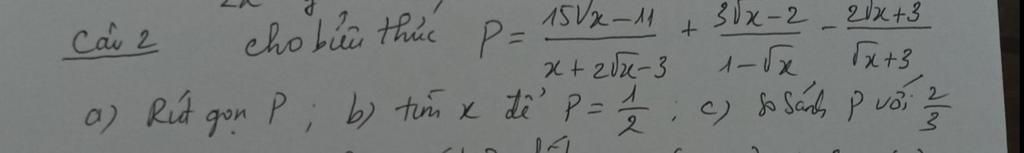 Câu 2 cho biểu thức P = \frac{15\sqrt{x}-11}{x+2\sqrt{x}-3} + \frac{3\sqrt{x}-2}{1-\sqrt{x}} - \frac{2\sqrt{x}+3}{\sqrt{x}+3}
a) Rút gọn P ; b) tìm x để P = \frac{1}{2} ; c) so sánh P với \frac{2}{3}